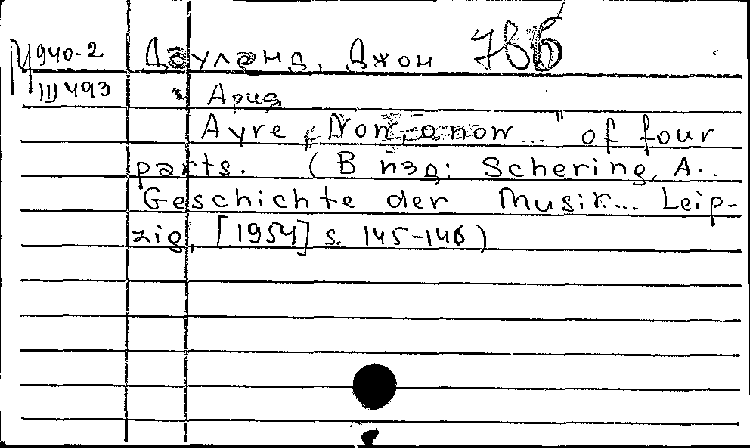 М940-2 Дауланд, Джон 786
III 493 Ария
Ayre „Non, o now..." of four
parts. (В изд: Schering, A..
Geschichte der Musik... Leip-
zig, [1954] s. 145-146)